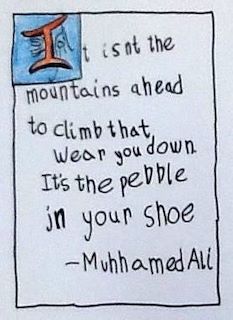 It isnt the
mountains ahead
to climb that
wear you down
It's the pebble
in your shoe
-Muhhamed Ali